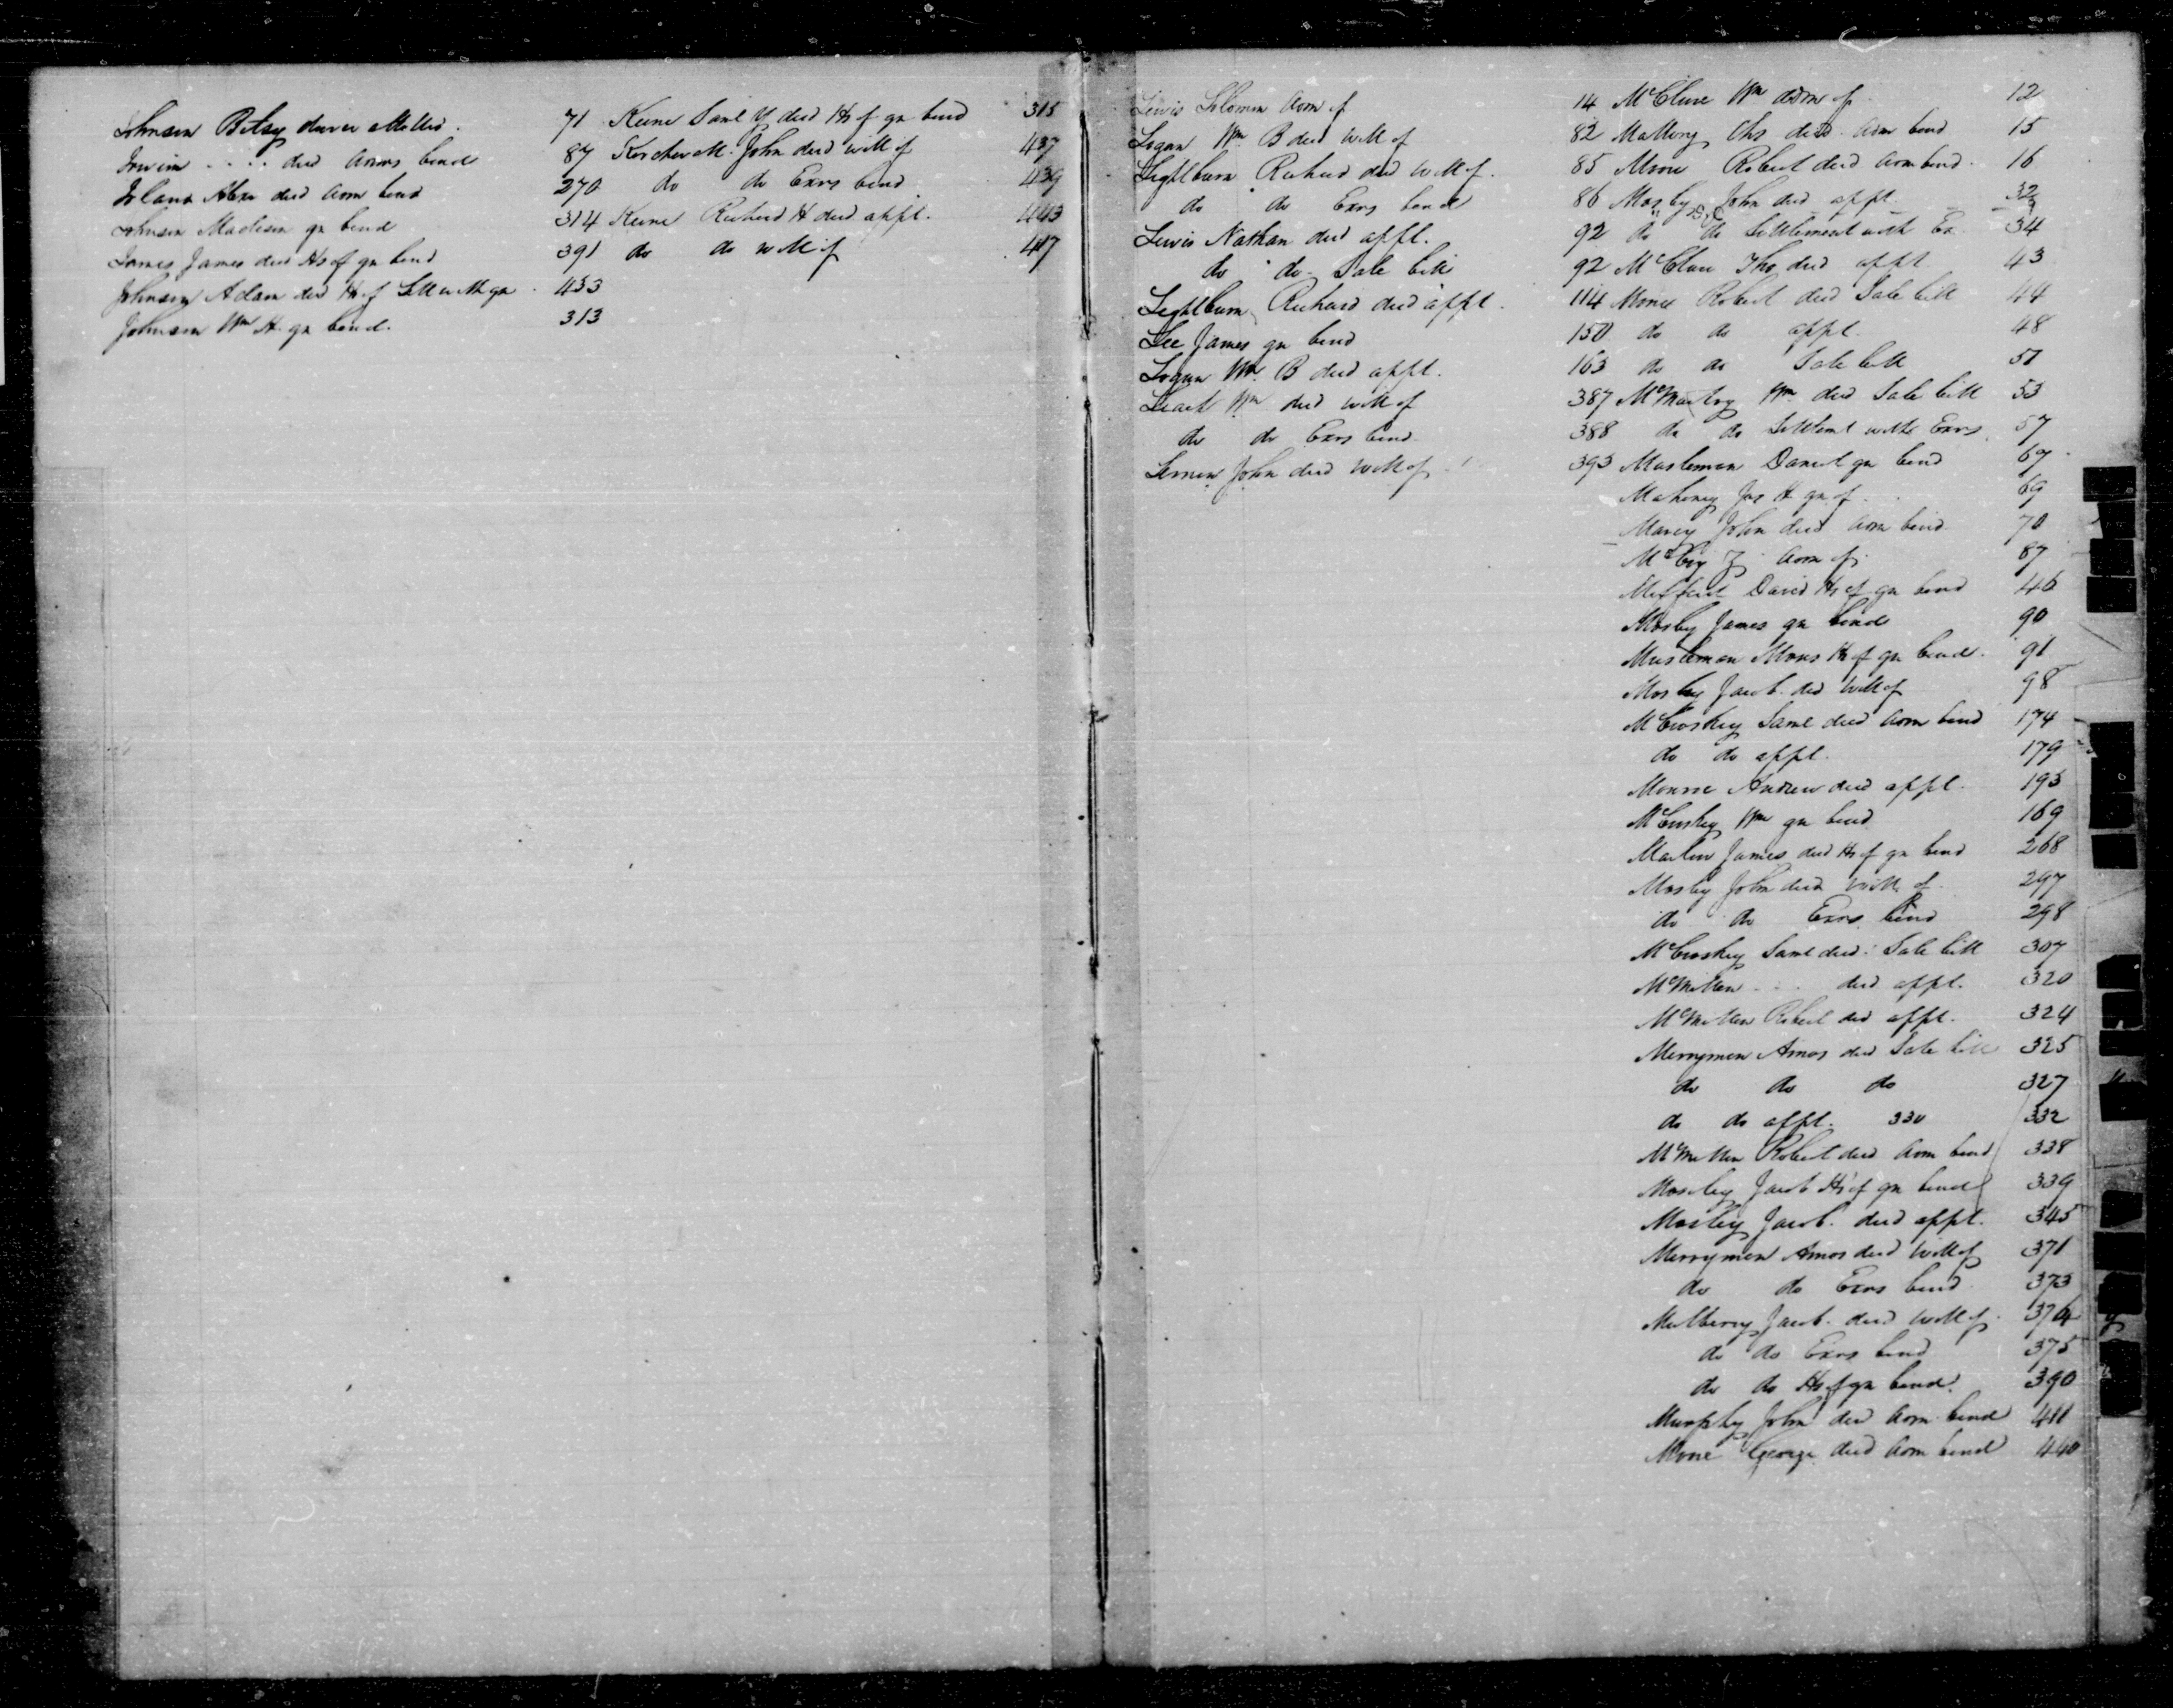 Johnson Betsy dower allotted. 71
Irwin .... decd Admrs bond 87
Ireland Alexr decd Adm bond 270
Johnson Madison gn bond 314
James James decd Hs of gn bond 391
Johnson Adam decd Hs of Settl with gn 433
Johnson Wm H. gn bond. 313
Keene Saml Y decd Hs of gn bond 315
John decd will of 437
do do Exrs bond 439
Keene Richard H decd appt. 443
do do will of 417
Lewis Solomon Adm of 14
Logan Wm B decd will of 82
Lightburn Richard decd will of. 85
do do Exrs bond 86
Lewis Nathan decd appt. 92
do do Sale bill 92
Lightburn Richard decd appt. 114
Lee James gn bond 150
Logan Wm B decd appt. 163
Wm decd will of 387
do do Exrs bond 388
John decd will of 393
McClure Wm Adm of 12
Mallory Chs decd Adm bond 15
Moore Robert decd Adm bond. 16
Mosby John decd appt. 32
do do Settlement with Ex. 34
McClure Tho decd appt 43
Moore Robert decd Sale bill 44
do do appt. 48
do do Sale bill 51
McMurtry Wm decd Sale bill 53
do do Settlemt with Exrs 57
Musleman Daniel gn bond 67
Mahoney Jas H gn of 69
John decd Adm bond 70
Adm of 87
David Hs of gn bond 46
Mosby James gn bond 90
Musleman Hs of gn bond. 91
Mosby Jacob decd will of 98
McCroskey Saml decd Adm bond 174
do do appt. 179
Monroe Andrew decd appt. 193
McCroskey Wm gn bond 169
Martin James decd Hs of gn bond 268
Mosby John decd will of 297
do do Exrs bond 298
McCroskey Saml decd Sale bill 307
McMillen ... decd appt. 320
McMillen Robert decd appt. 324
Merrymon Amos decd Sale bill 325
do do do 327
do do appt. 330 332
McMillen Robert decd Adm bond 338
Moseley Jacob Hs of gn bond 339
Mosley Jacob. decd appt. 345
Merrymon Amos decd will of 371
do do Exrs bond 373
Mulberry Jacob. decd will of 374
do do Exrs bond 375
do do Hs of gn bond. 390
Murphy John decd Adm bond 411
Moore George decd Adm bond 440